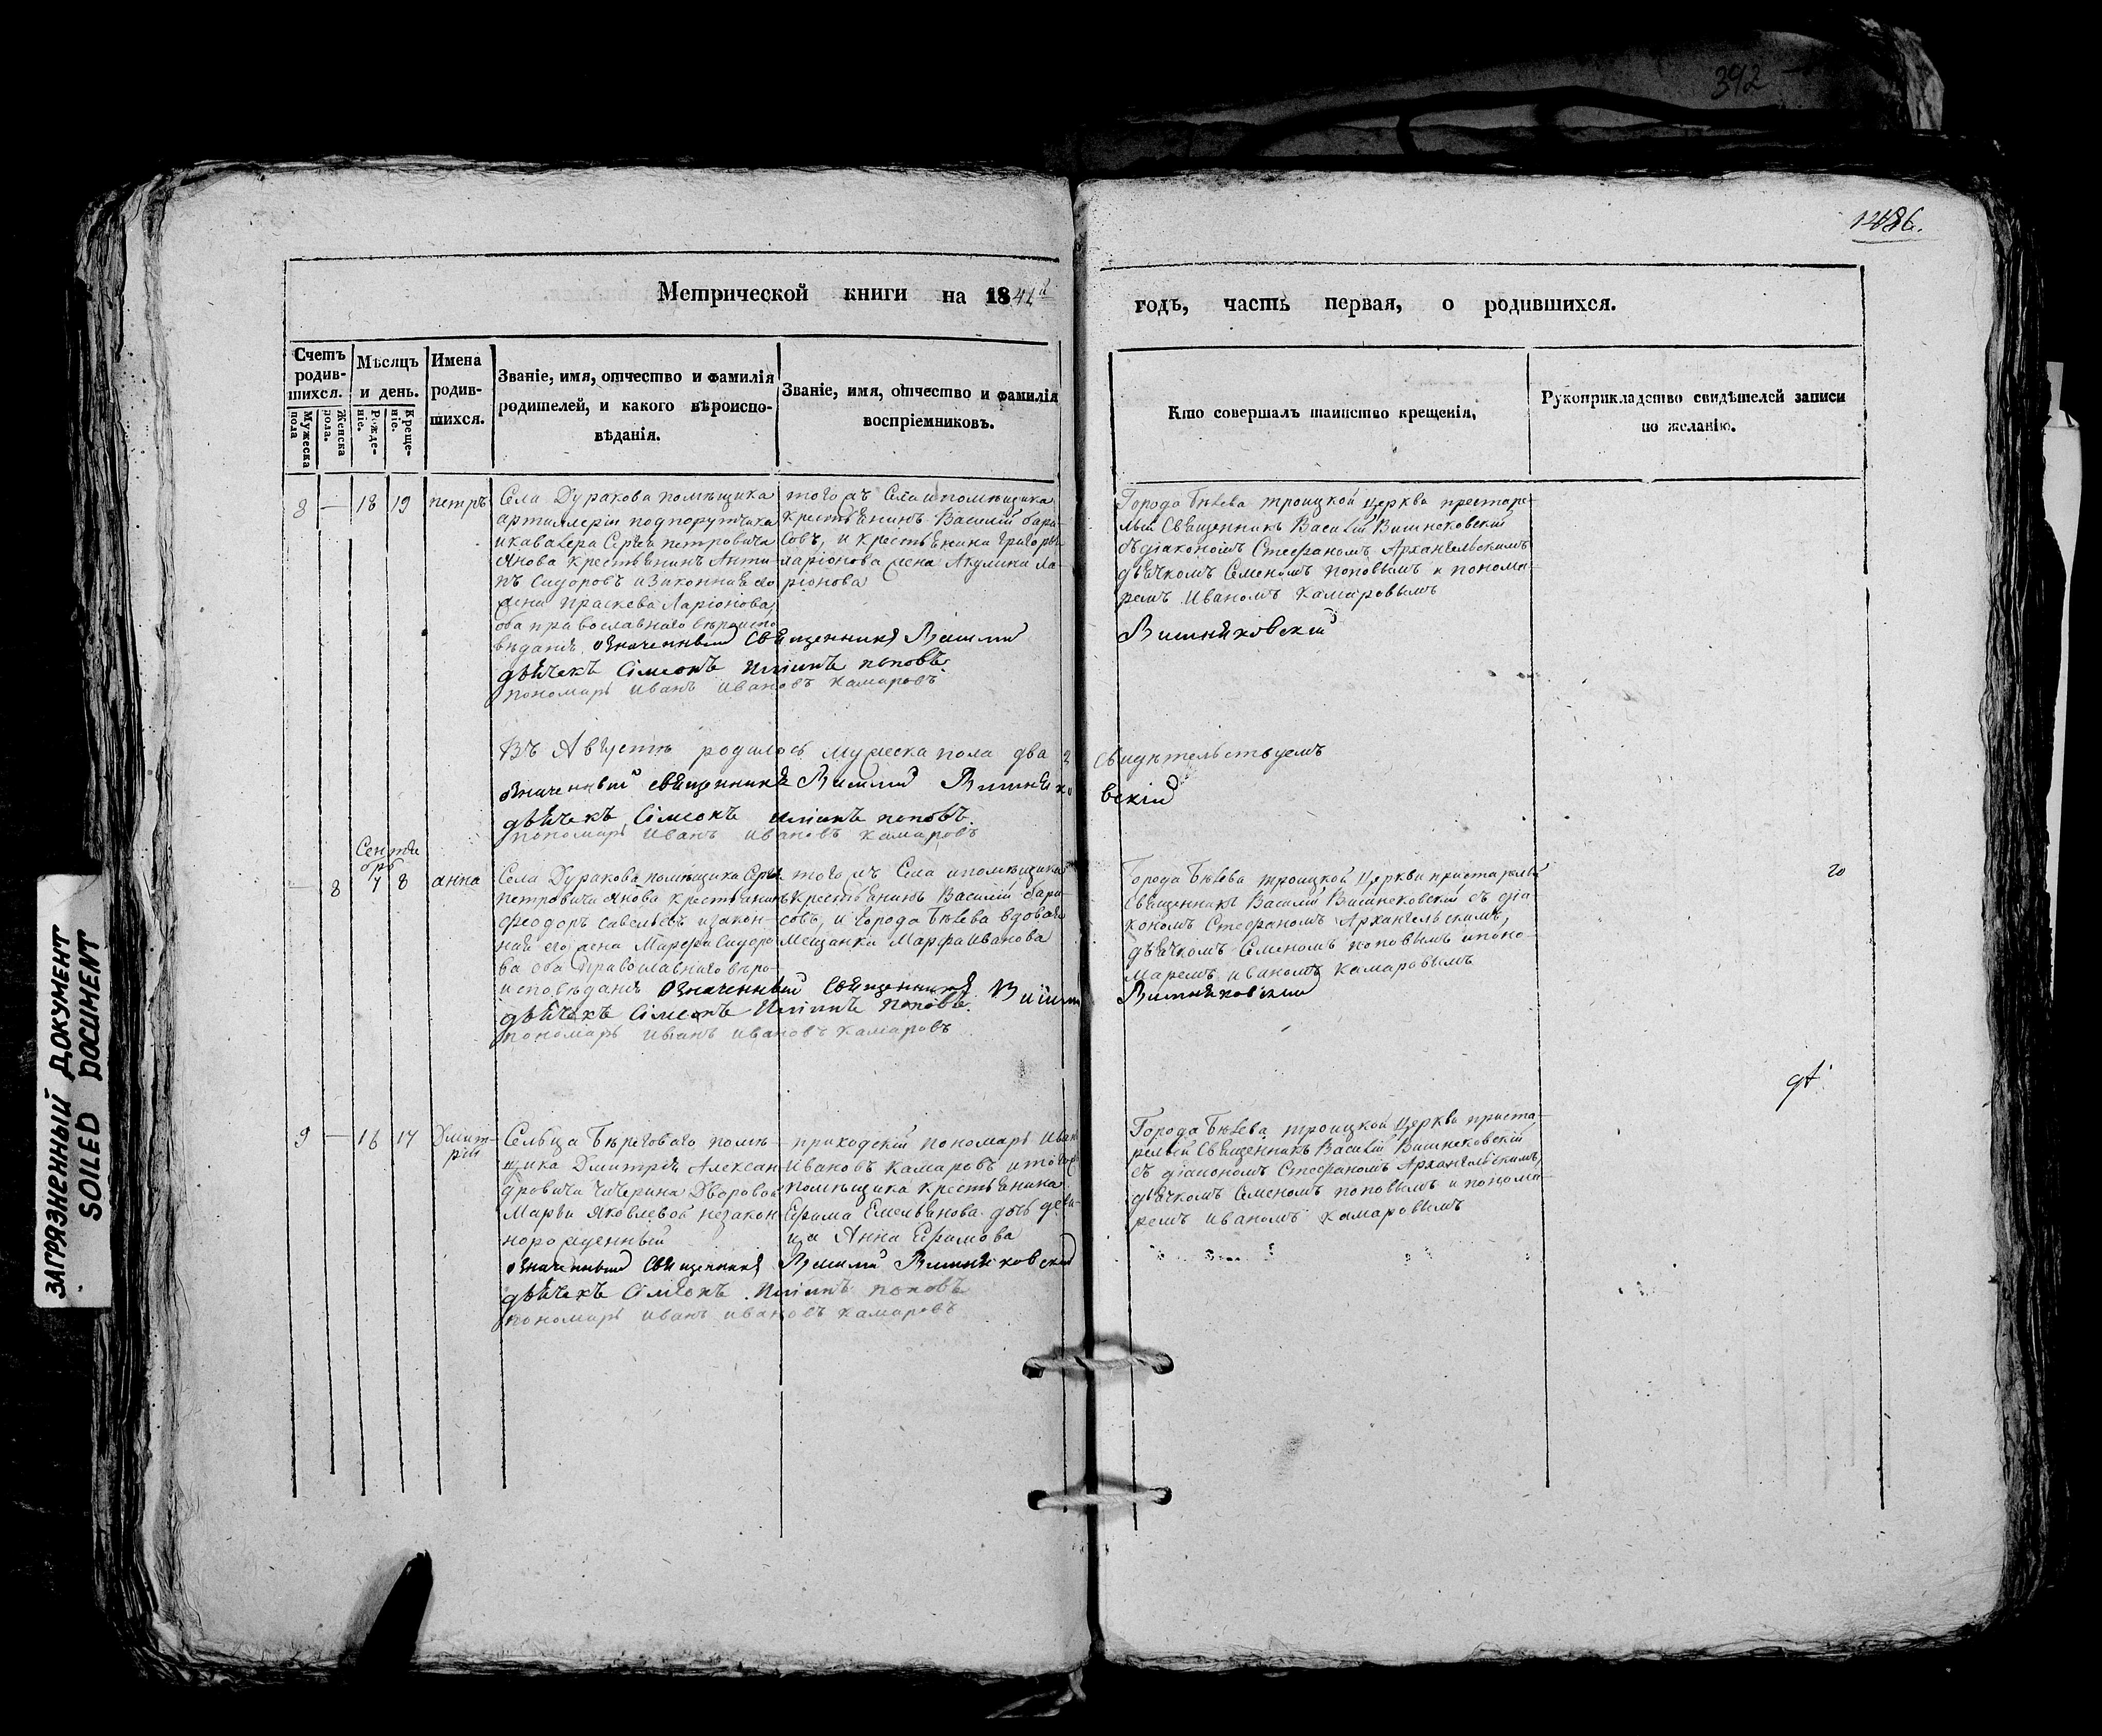 392
1486.
ЗАГРЯЗНЕННЫЙ ДОКУМЕНТ
SOILED DOCUMENT
Метрической книги на 1841й
годъ, часть первая, о родившихся.
Счетъ родив-шихся.
Мужеска пола
Женска пола.
Мѣсяцъ и день.
Рожде-ніе.
Креще-ніе.
Имена родив-шихся.
Званіе, имя, отчество и фамилія
родителей, и какого вѣроиспо-
вѣданія.
Званіе, имя, отчество и фамилія
воспріемниковъ.
Кто совершалъ таинство крещенія,
Рукоприкладство свидѣтелей записи
по желанію.
8 — 18 19 петръ
Села Дуракова помѣщика
артиллеріи подпорутчика
и кавалера Сергія петровича
Янова крестьянинъ Анти-
пъ Сидоровъ и законная его
жена праскева Ларіонова,
оба православнаго вѣроиспо
вѣданія означенный священникъ Василий
дьячекъ Симеонъ Ильинъ поповъ
пономарь иванъ ивановъ камаровъ
тогожъ Села и помѣщика
крестьянинъ Василій бари-
совъ, и крестьянина григорья
ларіонова жена Акулина ла-
ріонова
Города Бѣлева троицкой церкви престаре-
лый Священникъ Василій Вишнековскій
съ діакономъ Стефаномъ Архангельскимъ
дьячкомъ Семеномъ поповымъ и понома-
ремъ иваномъ камаровымъ
Вишняковский
Въ Августѣ родилось мужеска пола два 2
свидѣтельствуемъ
означенный священникъ Василий Вишняко
вский
дьячекъ Симеонъ Ильинъ поповъ.
пономарь иванъ ивановъ камаровъ
Сентя
брь
— 8 7 8 анна
Села Дуракова помѣщика Сергѣя
петровича Янова крестьянинъ
феодоръ савельевъ и закон-
ная его жена Марфа Сидоро
ва оба Православнаго вѣро-
исповѣданія означенный священникъ Василий
дьячекъ Симеонъ Ильинъ поповъ.
пономарь иванъ ивановъ камаровъ
тогожъ Села и помѣщика
крестьянинъ Василій бари-
совъ, и города Бѣлева вдовая
Мещанка Марфа Иванова
Города Бѣлева троицкой Церкви пристарелый
Священникъ Василій Вишнековский съ діа
кономъ Стефаномъ Архангельскимъ,
дьячкомъ Семеномъ поповымъ и поно-
маремъ иваномъ камаровымъ
Вишняковский
9 — 16 17 Дмит-
рій
Сельца Бѣреговаго помѣ-
щика Дмитрія Алексан
дровича Чичерина Дворовой
Марьи Яковлевой незакон
норожденный
означенный священникъ Василий Вишняковский
дьячекъ Симеонъ Ильинъ поповъ
пономарь иванъ ивановъ камаровъ
приходскій пономарь Иванъ
Ивановъ камаровъ и тогожъ
помѣщика крестьянина
Ефима Емельянова дочь деви-
ца Анна Ефимова
Города Бѣлева троицкой Церкви приста-
релый Священникъ Василій Вишнековскій
съ діакономъ Стефаномъ Архангельскимъ,
дьячкомъ Семеномъ поповымъ и понома-
ремъ иваномъ камаровымъ